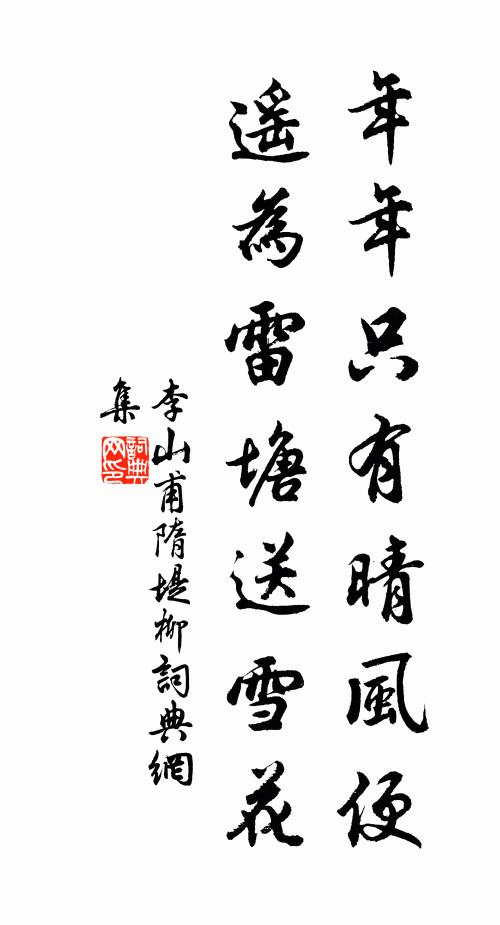 年年只有晴風便
遥為雷塘送雪花
李山甫隋堤柳詞典網
集
詞典網印